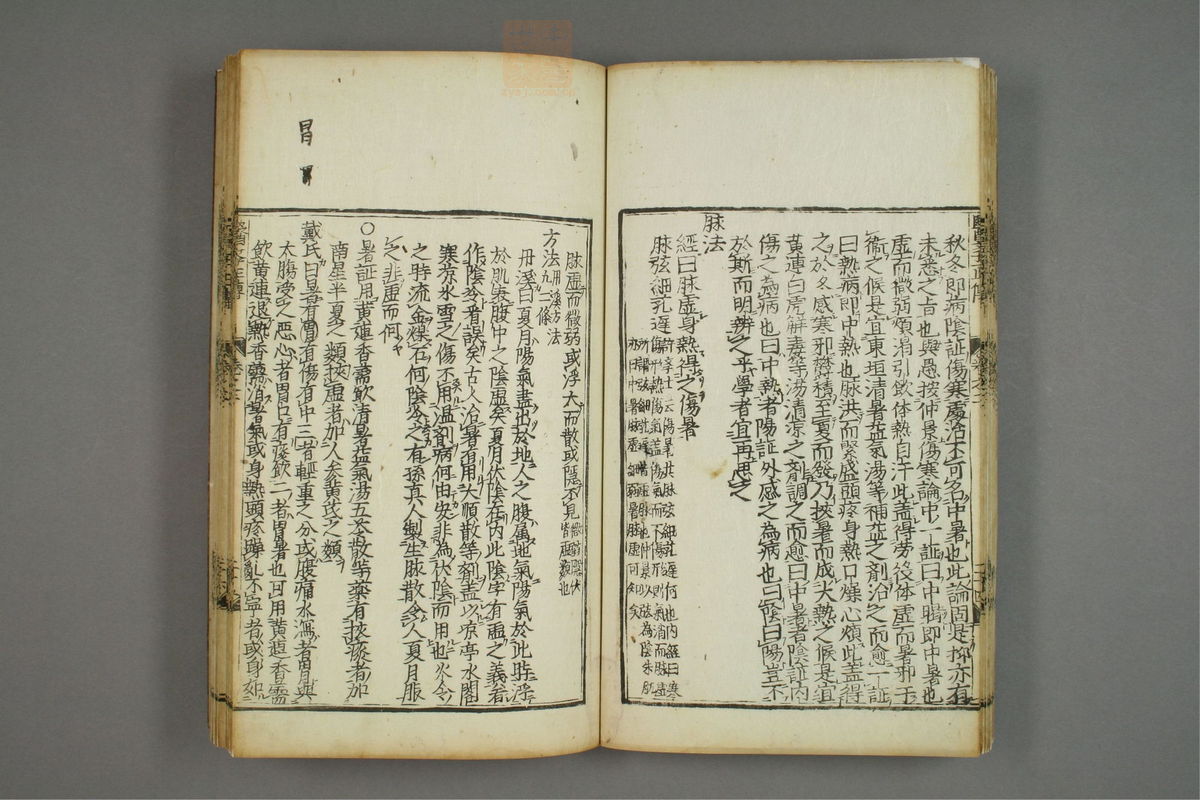 秋冬即病陰証傷寒處治不可名中暑也此論固是抑亦有
未悉之旨也與愚按仲景傷寒論中一証曰中暍即中暑也
虛而微弱煩渴引飲体熱自汗此盖得労役体虛而暑邪干
衞之候是宜東垣清暑益氣湯等補益之剤治之而愈一証
曰熱病即中熱也脉洪而緊盛頭疼身熱口燥心煩此盖得
之於冬感寒邪欝積至夏而發乃挾暑而成大熱之候是宜
黄連白虎解毒等湯清凉之剤調之而愈曰中暑者陰証内
傷之為病也曰中熱者陽証外感之為病也曰陰曰陽豈不
於斯而明辨之乎學者宜再思之
脉法
經曰脉虛身熱得之傷暑
脉弦細芤遅
許學士云傷暑其脉弦細芤遅何也内經曰寒
傷形熱傷氣盖傷氣則氣消而脉虛
脉虛而微弱或浮大而散或隱不見
微弱隱伏
皆虛類也
方法
用溪方法
九二條
丹溪曰夏月陽氣盡出於地人之腹属地氣陽氣於此時浮
於肌表腹中之陰虛矣夏月伏陰在内此陰字有虛之義若
作陰冷看誤矣古人治暑有用大順散等剤盖以凉亭水閣
寒凉氷雪之傷不用温剤病何由安非為伏陰而用也火令
之時流金爍石何陰冷之有孫真人製生脉散令人夏月服
之非虛而何
〇暑証用黄連香薷飲清暑益氣湯五苓散等藥有挾痰者加
南星半夏之類挾虛者加人参黄芪之類
戴氏曰暑有冒有傷有中三者輕重之分或腹痛水瀉者胃與
太腸受之悪心者胃口有痰飲二者冒暑也可用黄連香薷
飲黄連退熱香薷消暑氣或身熱頭疼躁乱不寧者或身如